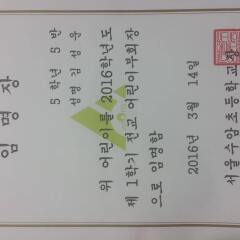 임 명 장
5 학년 5 반
성명 김 성 윤
위 어린이를 2016학년도
제 1학기 전교 어린이부회장
으로 임명함
2016년 3월 14일
서울수암초등학교장